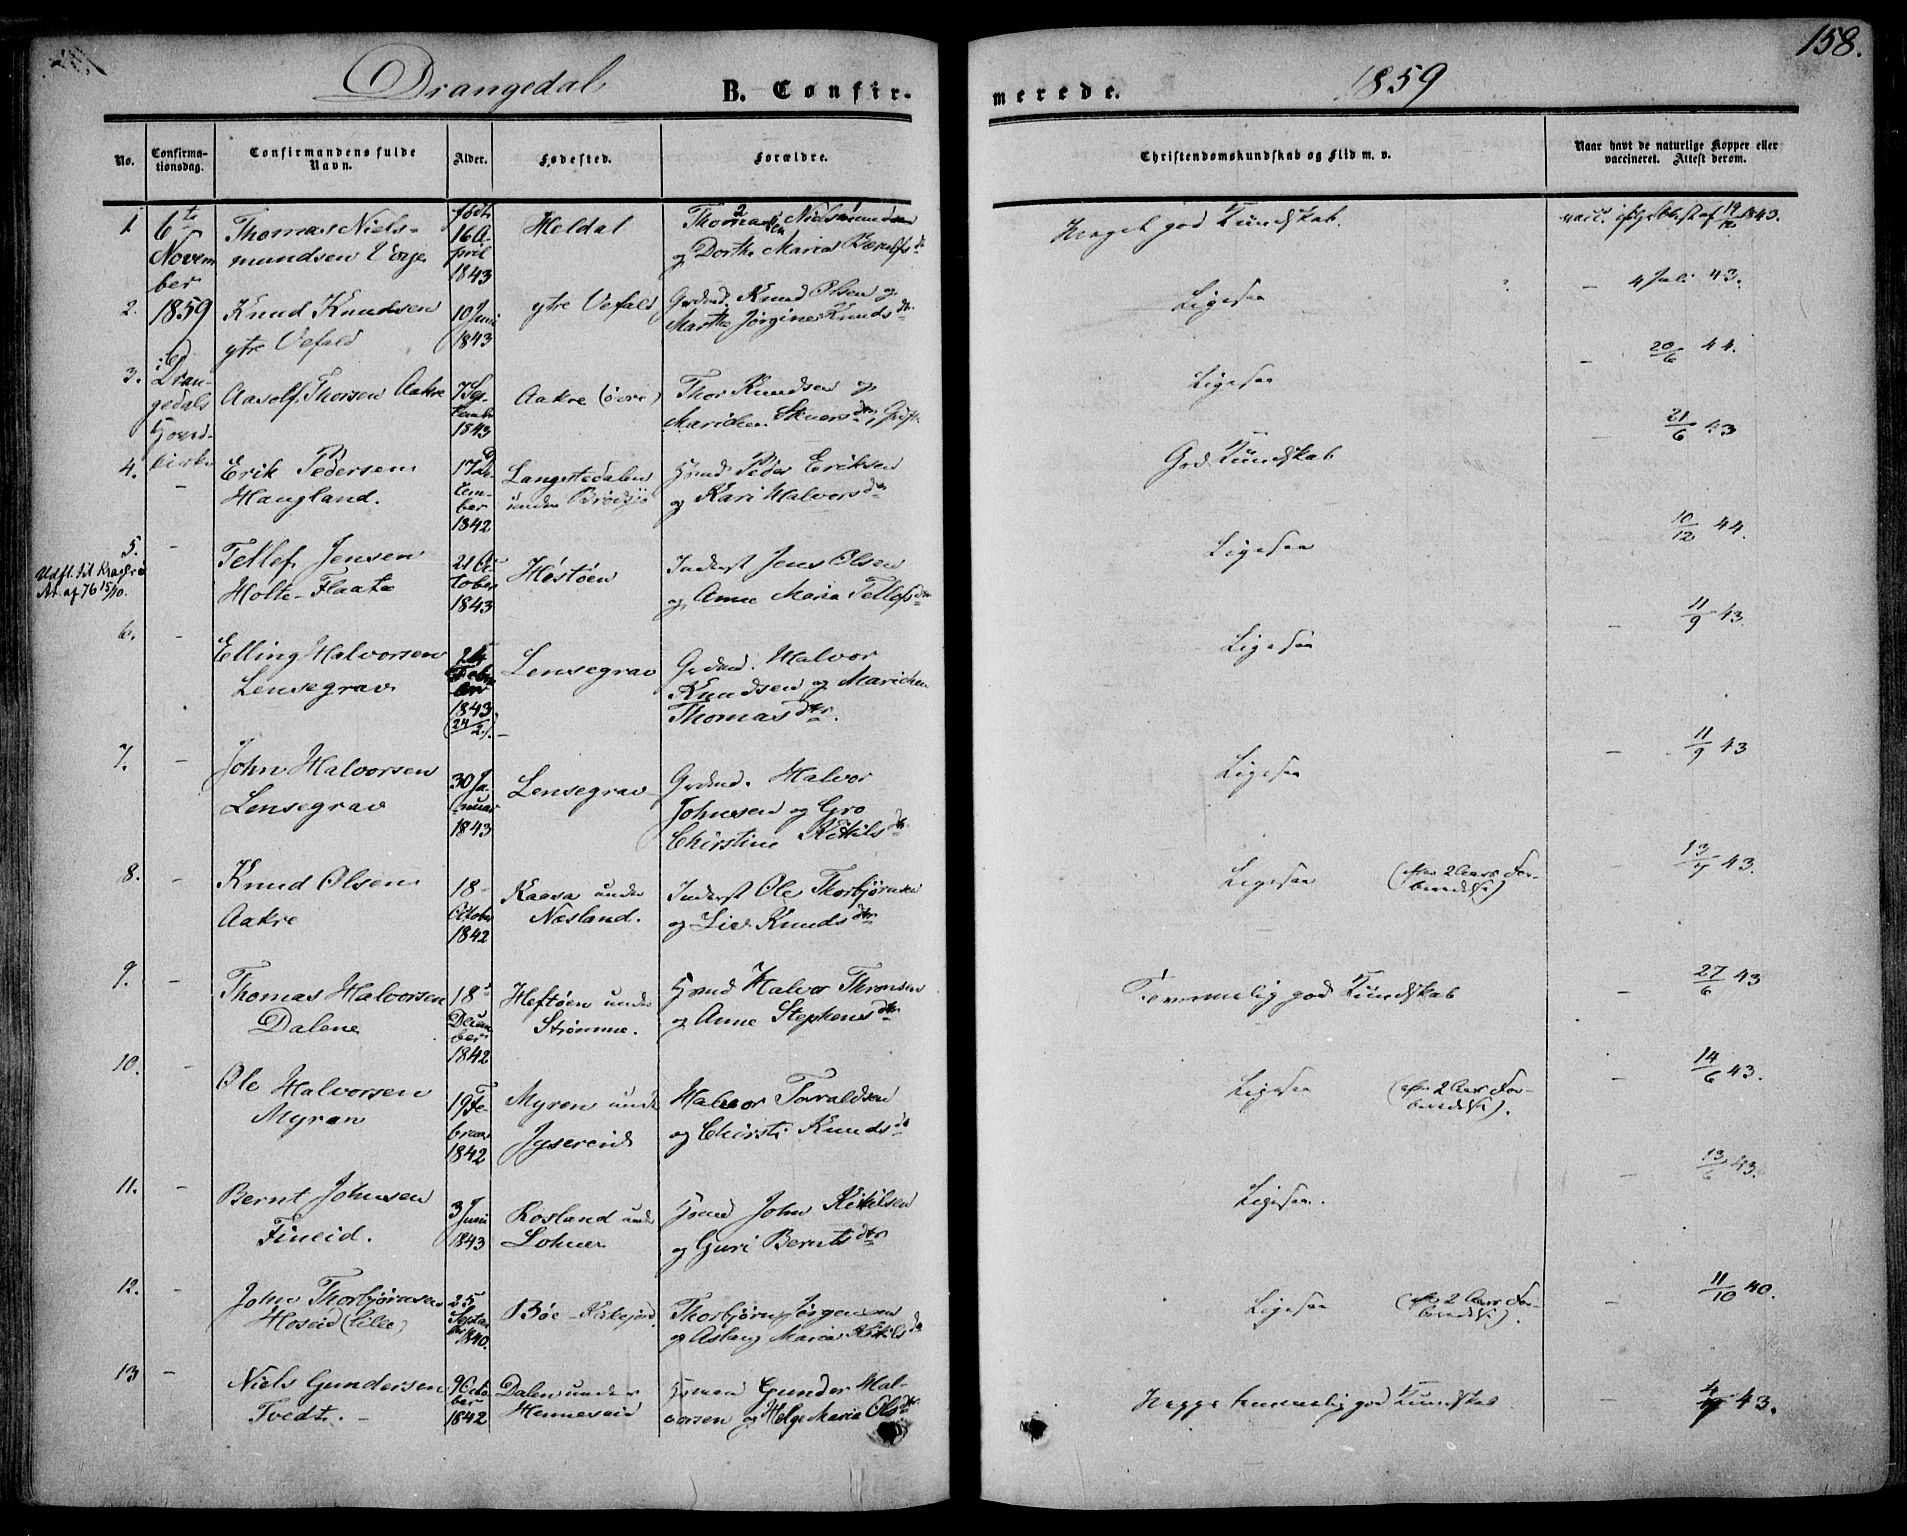 158.
Drangedal
B. Confir-
merede.
1859
No.
Confirma-
tionsdag.
Confirmandens fulde
Navn.
Alder.
Fødested.
Forældre.
Christendomskundskab og Flid m. v.
Naar havt de naturlige Kopper eller
vaccineret. Attest derom.
1.
6te
Novem
ber
1859
i Dran-
gedals
Hoved-
kirke
Thomas Niels-
mundsen
født
16 A-
pril
1843
Heldal
og Dorthe Maria
Meget god Kundskab.
1843.
2.
Knud Knudsen
ytre Vefald
10 Juni
1843
ytre Vefald
Grdmd. Knud Olsen og
Marthe Jørgine Knudsdtr.
Ligesaa
4 Juli 43.
3.
Aasolf Thorsen Aakre
7 Sep-
tember
1843
Aakre (øvre)
Thor Knudsen og
Marichen
Ligesaa
- 20/6 44.
4.
-
Erik Pedersen
Haugland.
17 De-
cem-
ber
1842
Langstedalen
under
Hsmd Peder Eriksen
og Kari Halvorsdtr
God Kundskab
- 21/6 43
5.
-
Udfl. til Kragerø
At. af 76 15/10.
Tellef Jensen
Holte-Flaate
21 Oc-
tober
1843
Høstøen
Inderst Jens Olsen
og Anne Maria Tellefsdtr
Ligesaa
- 10/12 44.
6.
-
Elling Halvorsen
Lensegrav
24
Febru
ar
1843
(24/2).
Lensegrav
Grdmd. Halvor
Knudsen og Marichen
Thomasdtr.
Ligesaa
- 11/9 43.
7.
-
John Halvorsen
Lensegrav
30 Ja-
nuar
1843
Lensegrav
Grdmd. Halvor
Johnsen og Gro
Christine Kittilsdtr
Ligesaa
- 11/9 43
8.
-
Knud Olsen
Aakre
18
October
1842
Kaasa under
Næsland.
Inderst Ole Thorbjørnsen
og Live Knudsdtr
Ligesaa (efter 2 Aars For-
beredelse)
- 43.
9.
-
Thomas Halvorsen
Dalene
18
Decem
ber
1842
Heftøen under
Strømme.
Hsmd Halvor Thomsen
og Anne Stephensdtr
Temmelig god Kundskab
- 27/6 43
10.
-
Ole Halvorsen
Myran
19 Fe-
bruar
1842
Myren under
Halvor Toraldsen
og Christi Knudsdtr
Ligesaa (efter 2 Aars For-
beredelse).
- 14/6 43.
11.
-
Bernt Johnsen
Fineid.
3 Juni
1843
Rosland under
Hsmd John Kittilsen
og Guri Berntsdtr
Ligesaa.
- 13/6 43.
12.
-
John Thorbjørnsen
Hoseid (lille)
25
Septem
ber
1840.
Bøe
Thorbjørn Jørgensen
og Aslaug Maria Kittilsdtr
Ligesaa (efter 2 Aars For-
beredelse).
- 11/10 40.
13
-
Niels Gundersen
Tvedt.
9 Octo-
ber
1842
Dalen under
Henneseid
Gunder Hal-
vorsen og Helge Maria Olsdtr
temmelig god Kundskab
- 43.